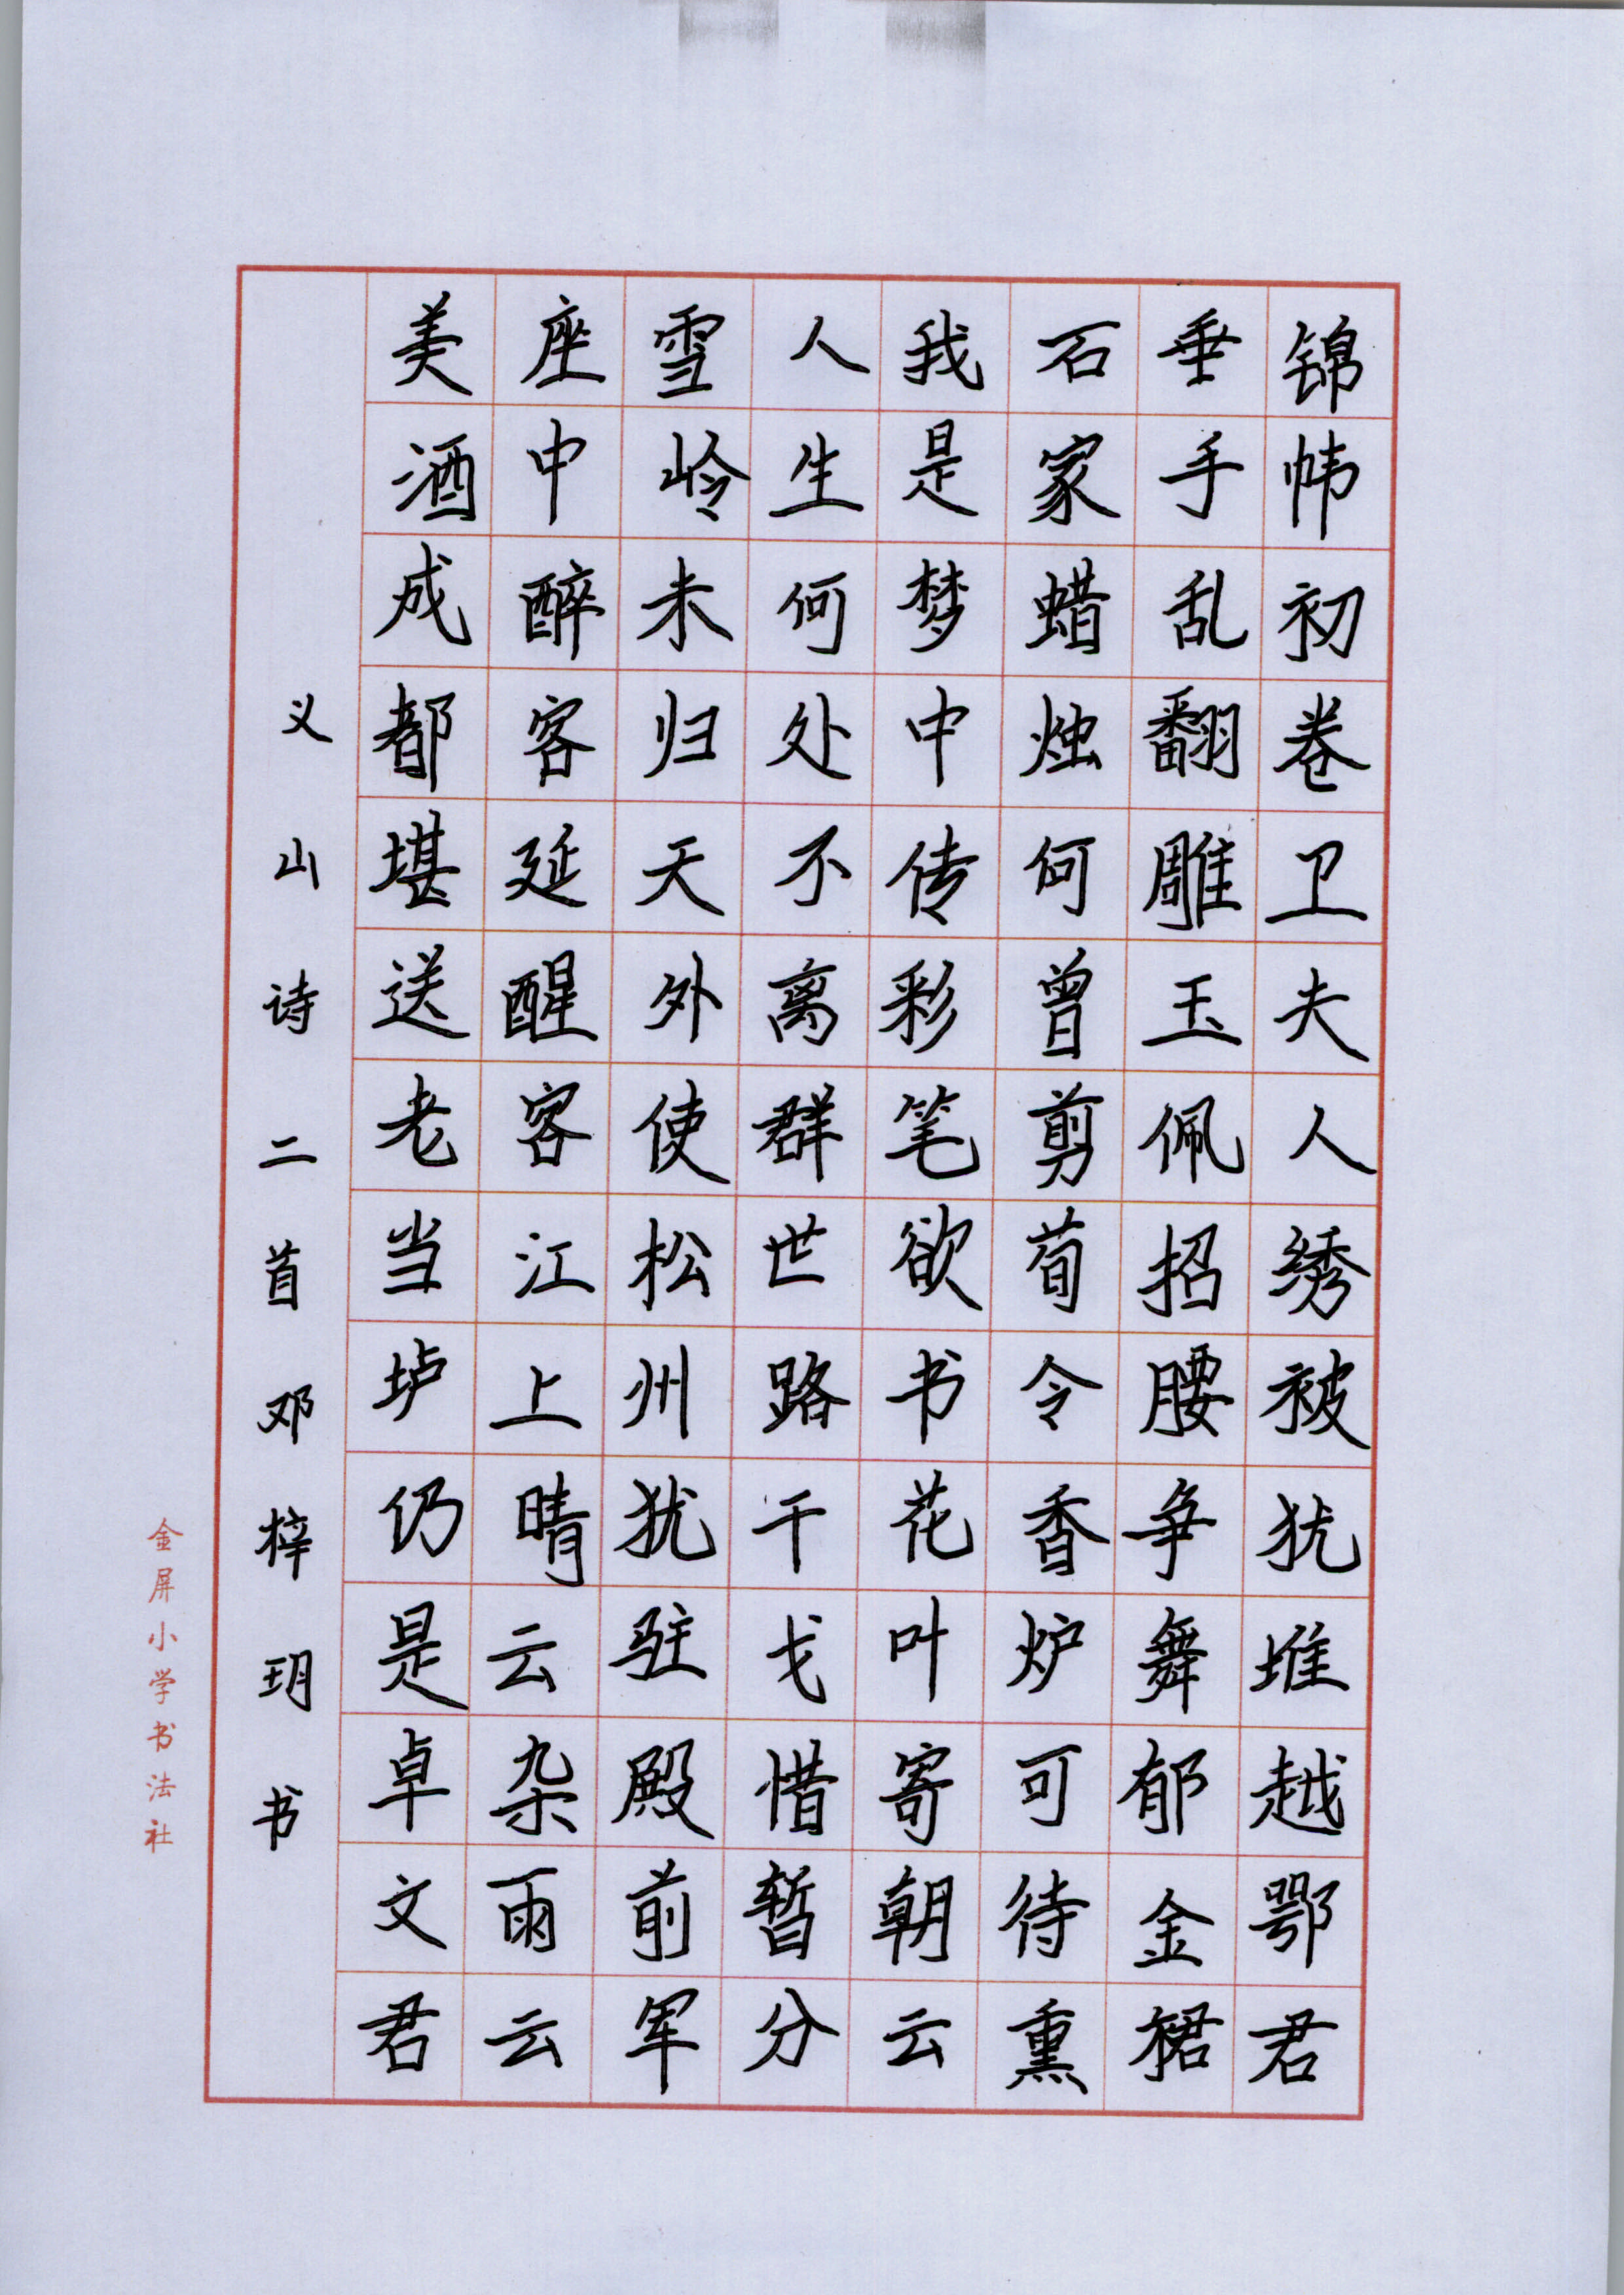 锦帏初卷卫夫人绣被犹堆越鄂君
垂手乱翻雕玉佩招腰争舞郁金裙
石家蜡烛何曾剪荀令香炉可待熏
我是梦中传彩笔欲书花叶寄朝云
人生何处不离群世路干戈惜暂分
雪岭未归天外使松州犹驻殿前军
座中醉客延醒客江上晴云杂雨云
美酒成都堪送老当垆仍是卓文君
义山诗二首邓梓玥书
金屏小学书法社